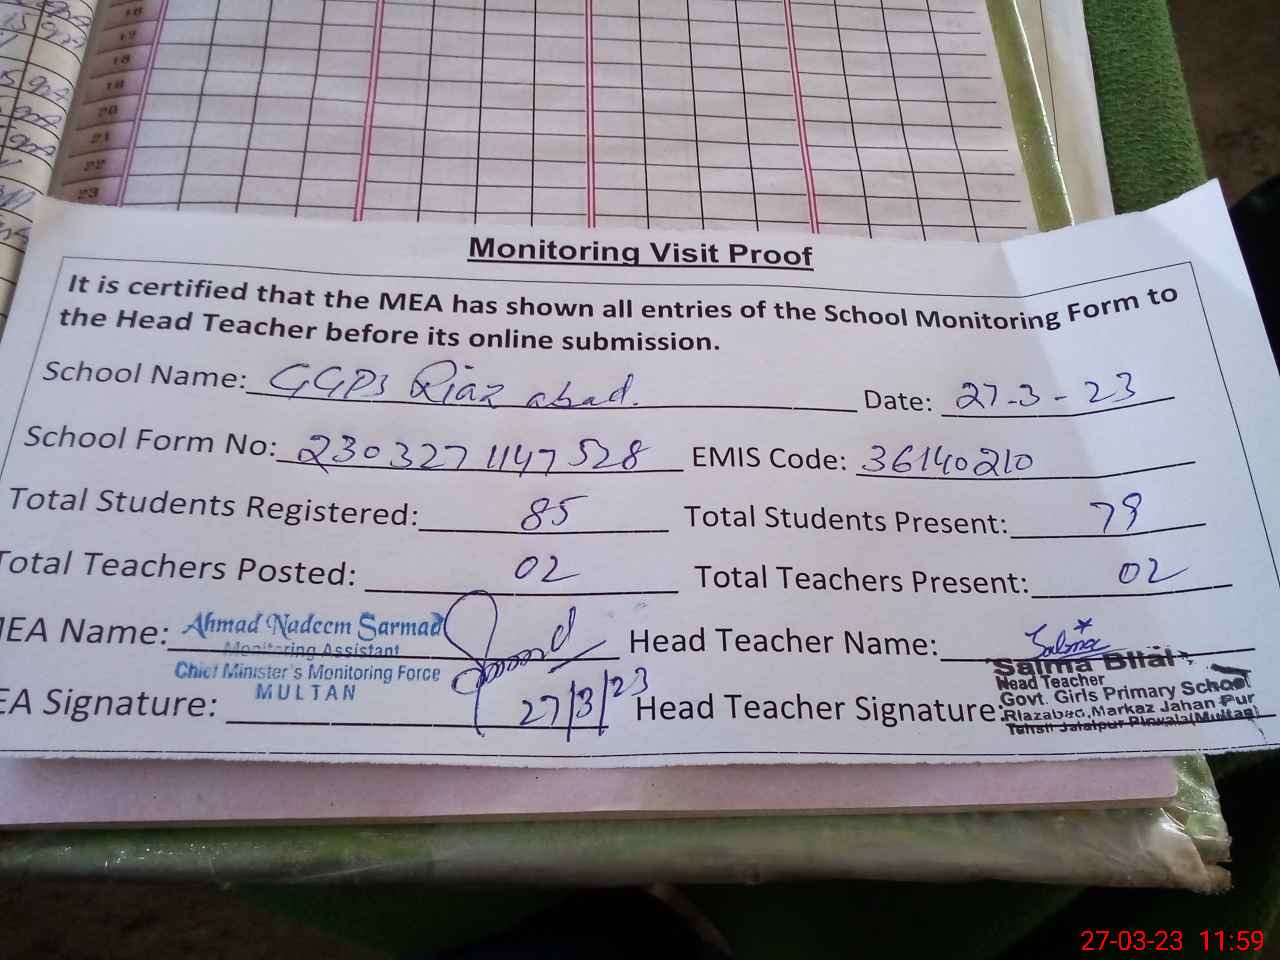 16
17
18
19
20
21
22
23
Monitoring Visit Proof
It is certified that the MEA has shown all entries of the School Monitoring Form to
the Head Teacher before its online submission.
School Name: GGPS Riaz abad. Date: 27-3-23
School Form No: 230327 1147528 EMIS Code: 36140210
Total Students Registered: 85 Total Students Present: 79
Total Teachers Posted: 02 Total Teachers Present: 02
MEA Name: Ahmad Nadeem Sarmad Head Teacher Name: Salma
Monitoring Assistant
Chief Minister's Monitoring Force
MULTAN
EA Signature: 27/3/23 Head Teacher Signature:
Salma Bilal
Head Teacher
Govt. Girls Primary School
Riazabad, Markaz Jahan Pur
Tehsil Jalalpur Pirwala (Multan)
27-03-23 11:59